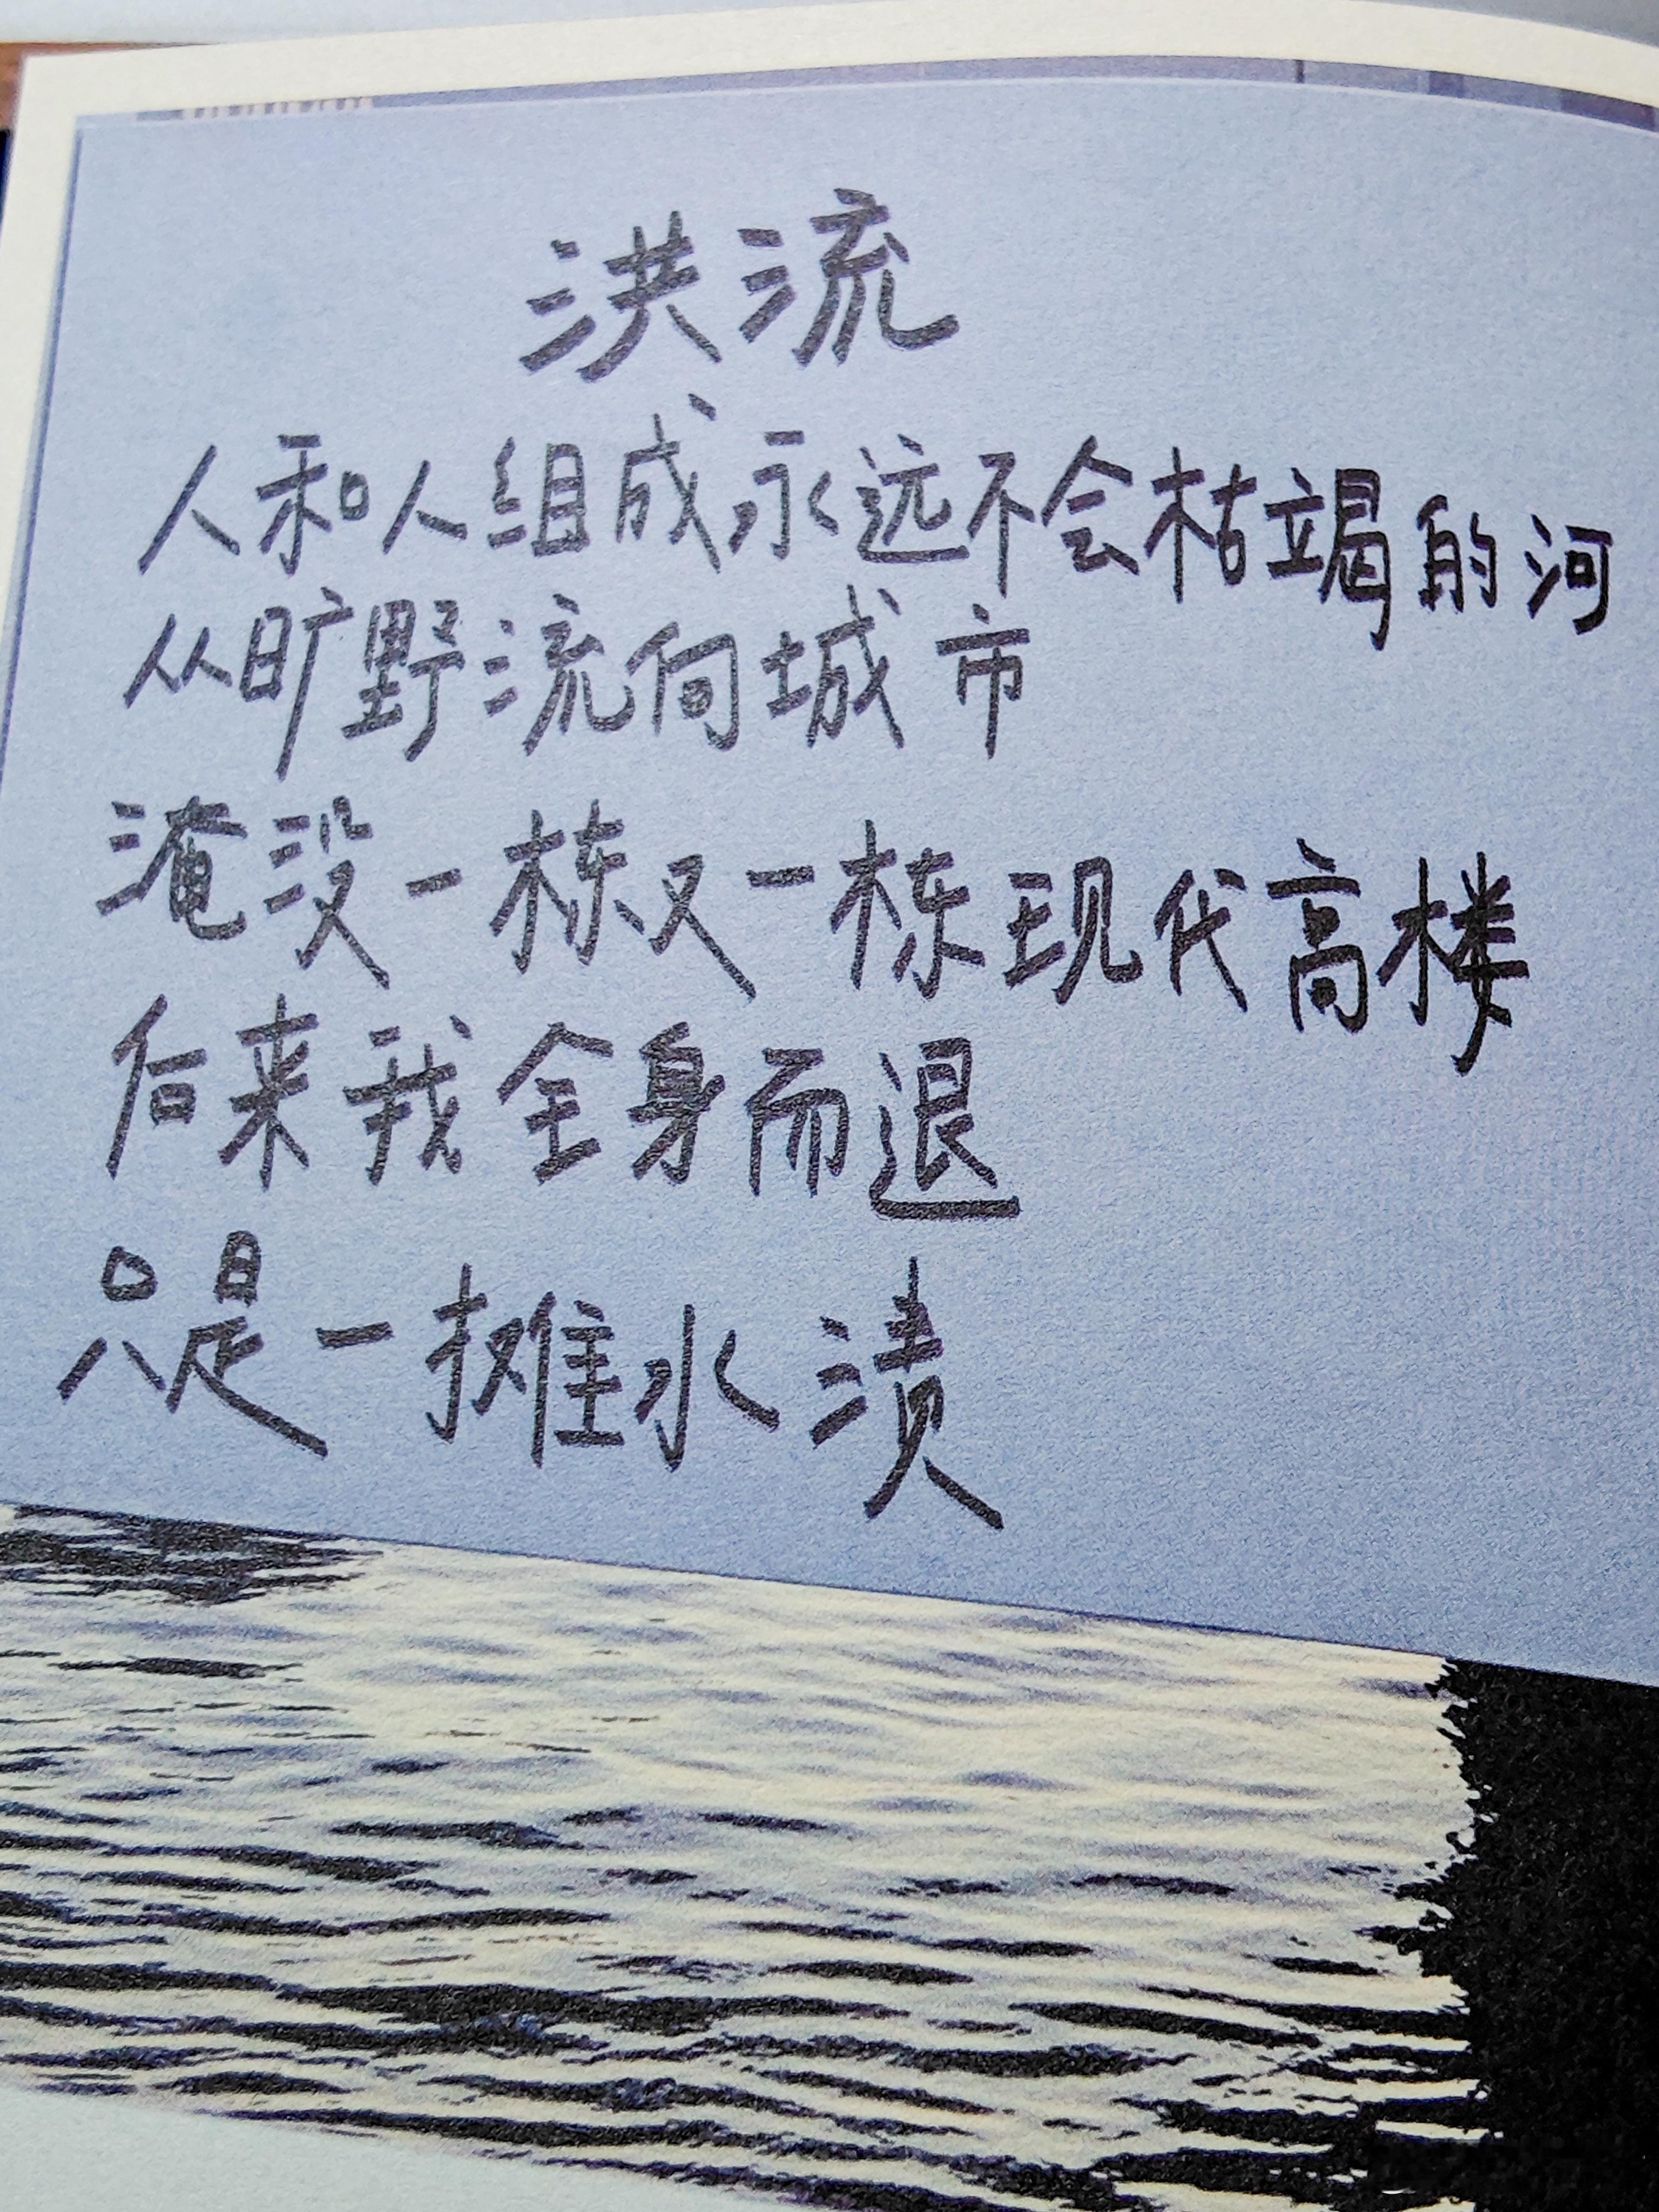 洪流
人和人组成永远不会枯竭的河
从旷野流向城市
淹没一栋又一栋现代高楼
后来我全身而退
只是一摊水渍